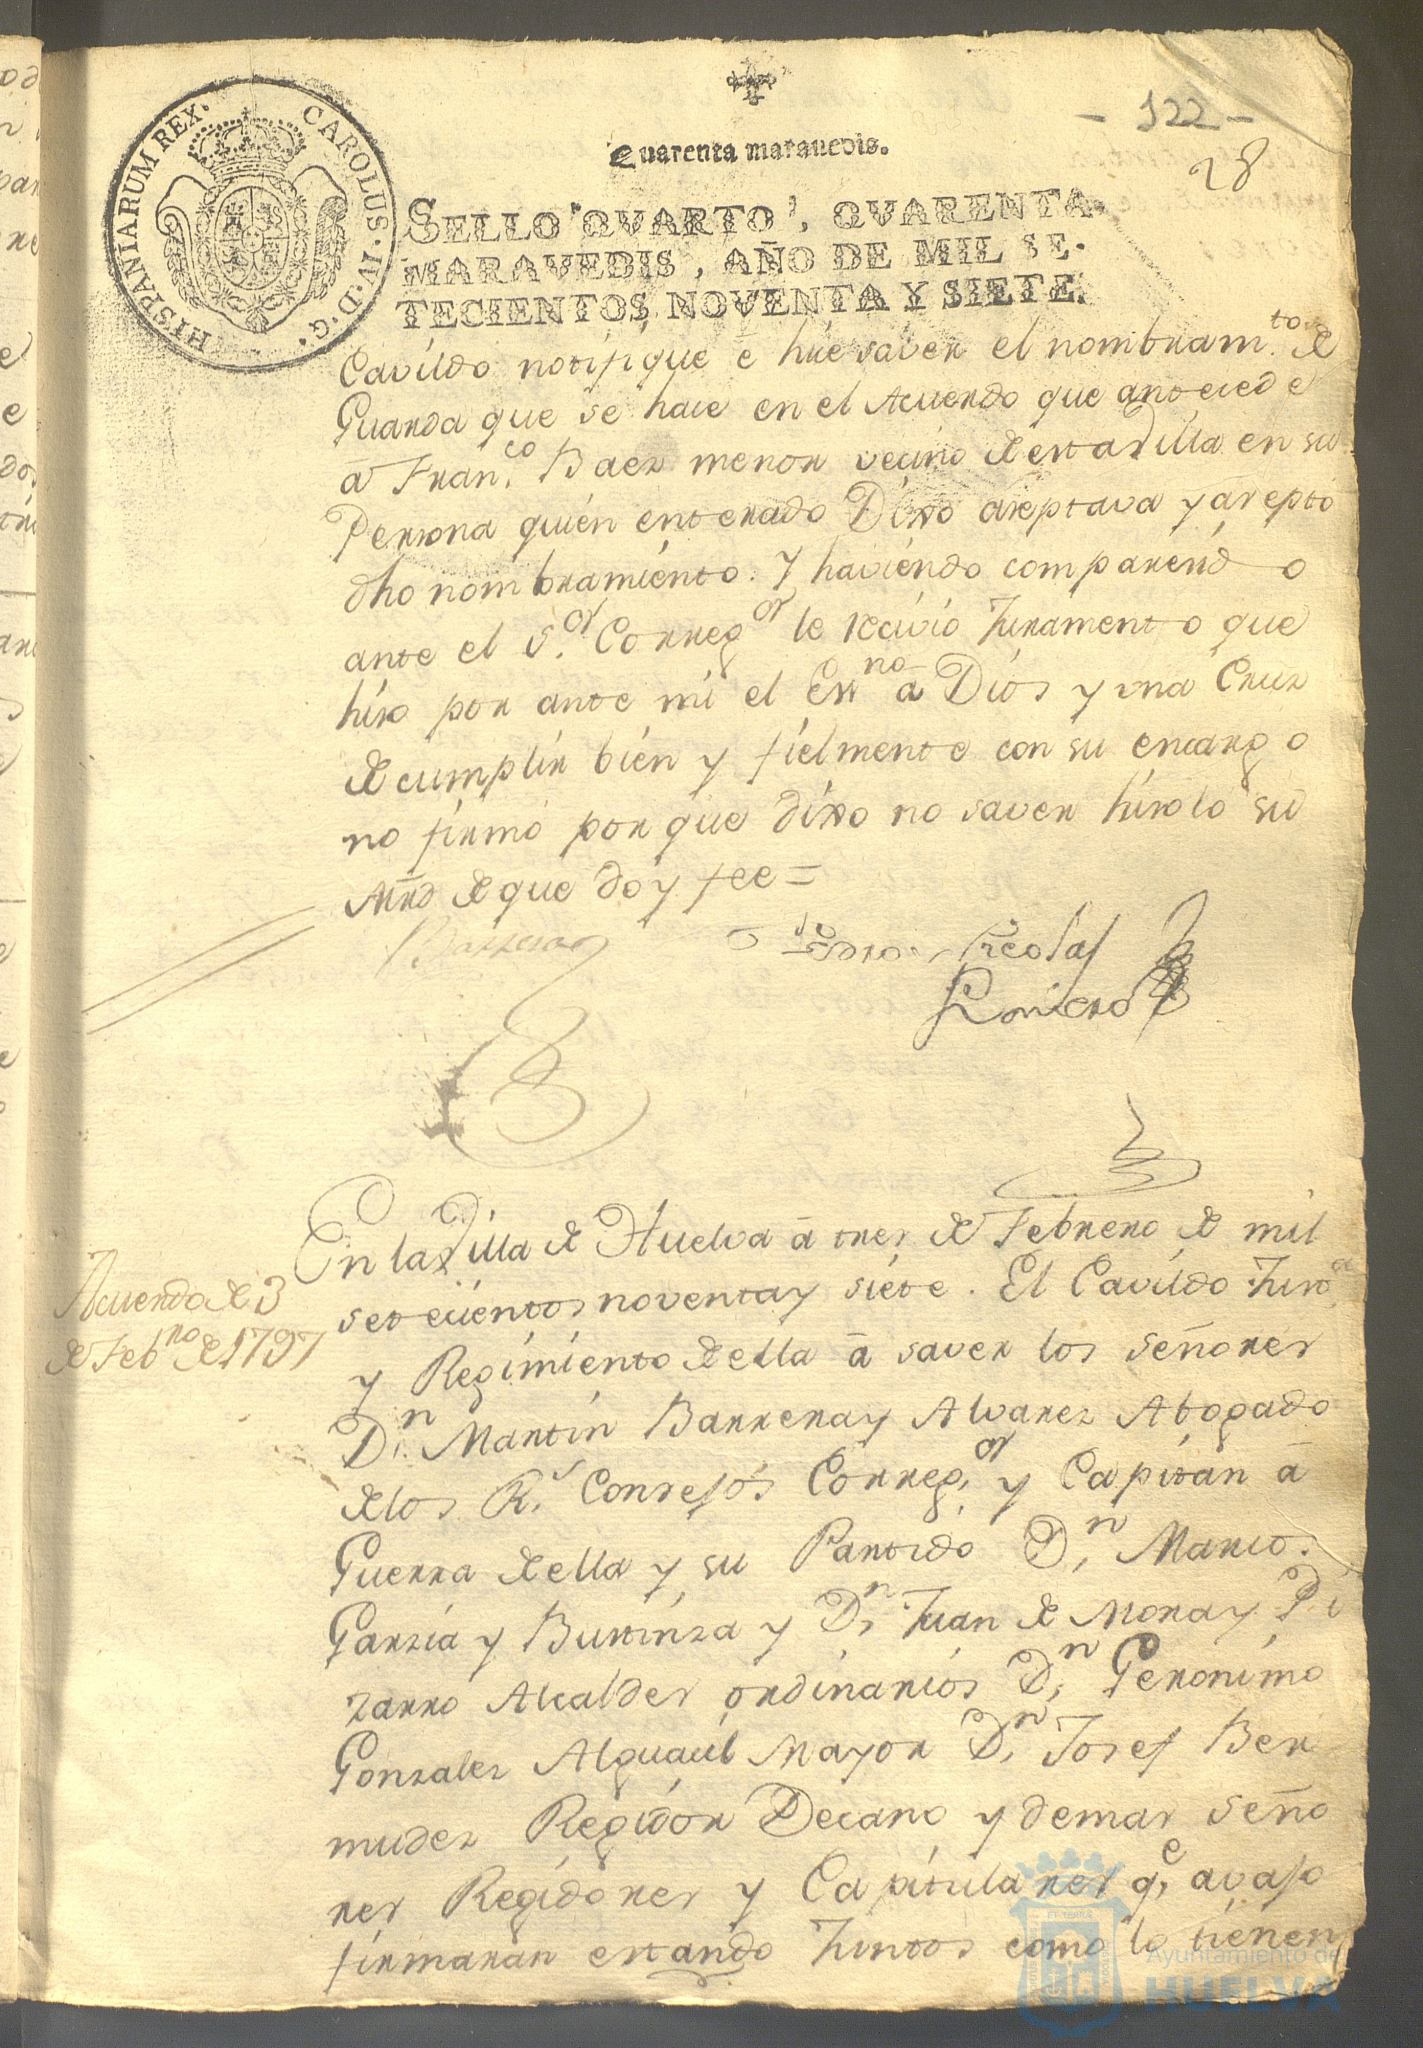 - 122 -
28
Quarenta maravedis.
CAROLUS·IV·D·G· HISPANIARUM REX·
SELLO QVARTO, QVARENTA
MARAVEDIS, AÑO DE MIL SE-
TECIENTOS NOVENTA Y SIETE.
Cavildo notifique e hice saver el nombram.to de
Guarda que se hace en el Acuerdo que antecede
a Fran.co Baez menor vecino de esta Villa en su
Persona quien enterado Dixo aceptava y acepto
dho nombramiento. Y haviendo comparecido
ante el S.or Correg.or le recivio Juramento que
hizo por ante mi el Essno a Dios y una Cruz
de cumplir bien y fielmente con su encargo
no firmo por que dixo no saver hizolo su
Mrd de que doy fee =
Barrera
Pedro Nicolas
Romero
Acuerdo de 3
de Feb.ro de 1797
En la Villa de Huelva â tres de Febrero de mil
setecientos noventa y siete. El Cavildo Just.a
y Regimiento de ella â saver los señores
D.n Martin Barrera y Alvarez Abogado
de los R.s Consejos Correg.or y Capitan â
Guerra de ella y su Partido D.n Marcos
Garzia y Bustinza y D.n Juan de Mora y Pi
zarro Alcaldes ordinarios D.n Geronimo
Gonzalez Alguacil Mayor D.n Josef Ber
mudez Regidor Decano y demas seño
res Regidores y Capitulares q.e avajo
firmaran estando Juntos como lo tienen
Ayuntamiento de
HUELVA